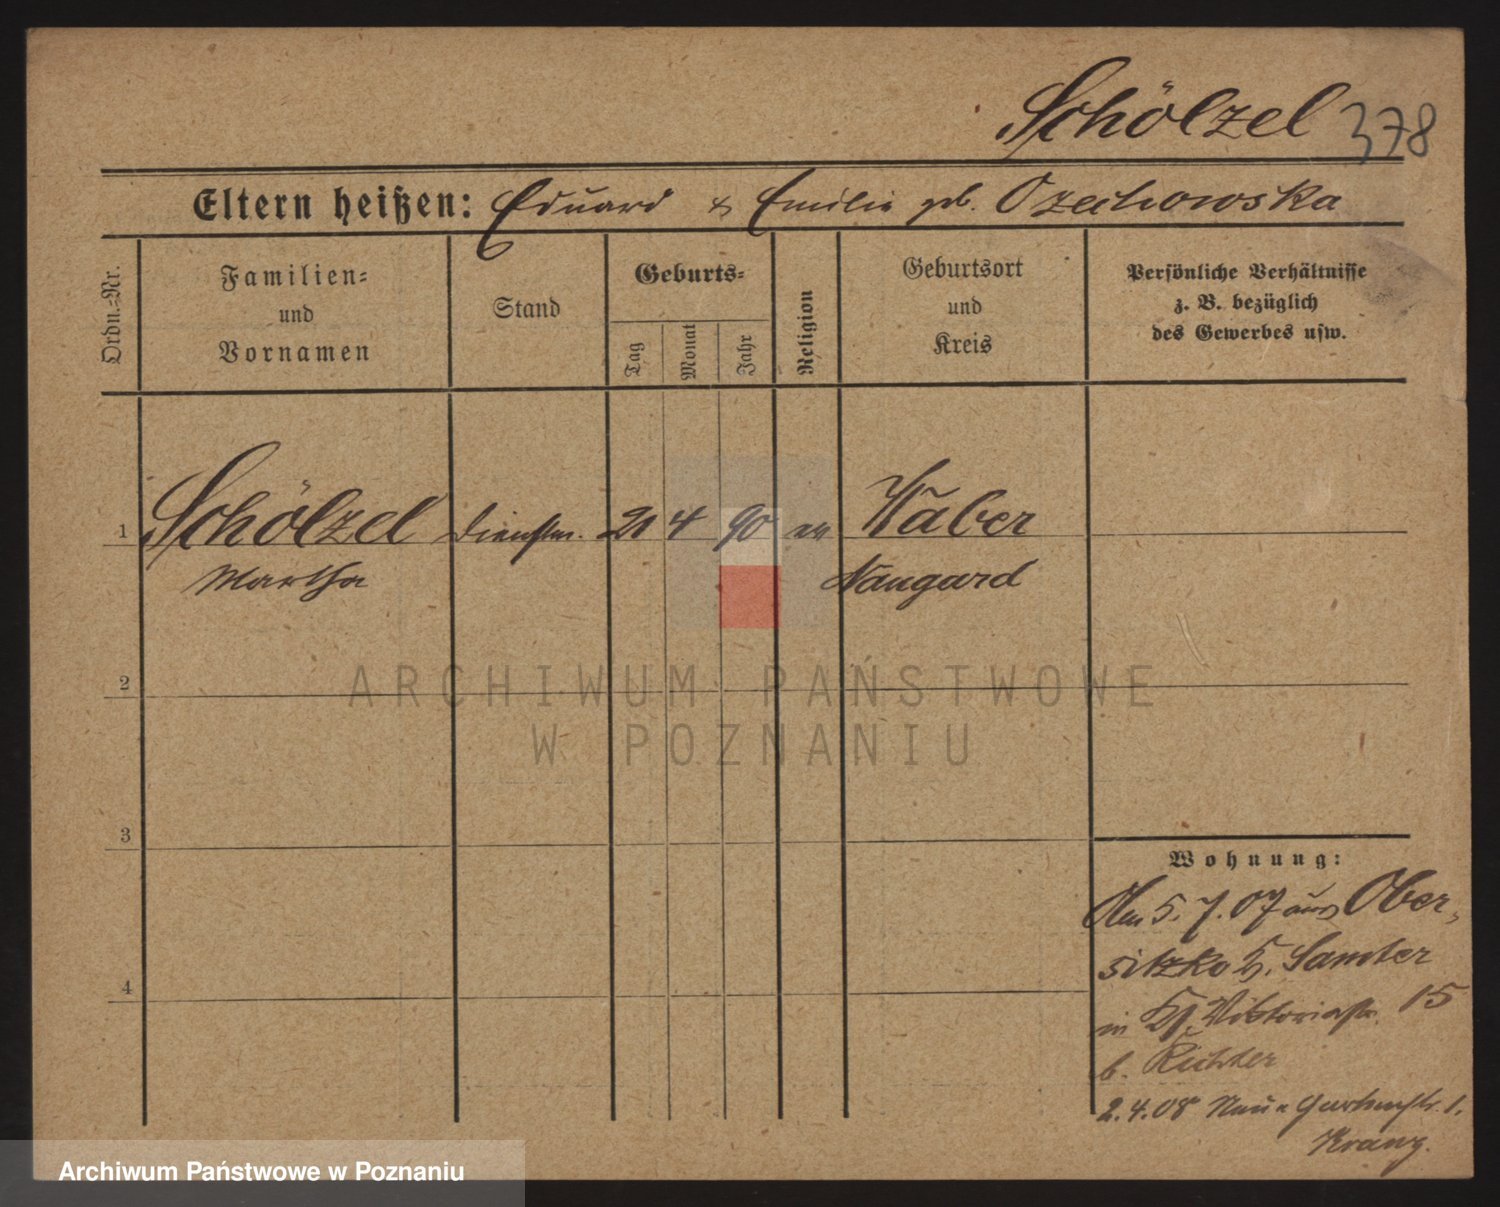 Schölzel 378
Eltern heißen: Eduard & Emilie geb. Ozechowska
Ordn.-Nr.
Familien-
und
Vornamen
Stand
Geburts-
Tag
Monat
Jahr
Religion
Geburtsort
und
Kreis
Persönliche Verhältnisse
z. B. bezüglich
des Gewerbes usw.
1 Schölzel Dienstm. 21 4 90 ev
Martha Naugard
2
3
4
Wohnung:
5. 7. 07 aus Ober-
sitzko K. Samter
in Viktoriastr. 15
b. Richter
2.4.08 Neue Gartenstr. 1.
ARCHIWUM PAŃSTWOWE
W POZNANIU
Archiwum Państwowe w Poznaniu